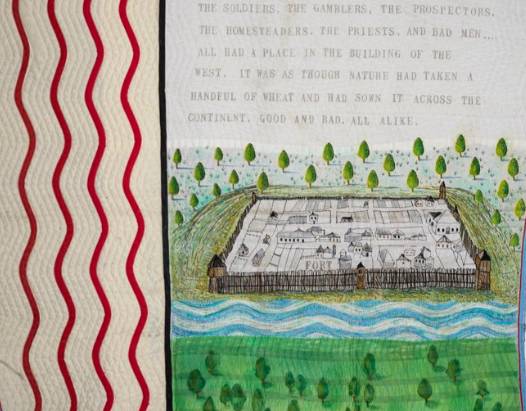 THE SOLDIERS, THE GAMBLERS, THE PROSPECTORS,
THE HOMESTEADERS, THE PRIESTS, AND BAD MEN....
ALL HAD A PLACE IN THE BUILDING OF THE
WEST. IT WAS AS THOUGH NATURE HAD TAKEN A
HANDFUL OF WHEAT AND HAD SOWN IT ACROSS THE
CONTINENT, GOOD AND BAD, ALL ALIKE.
FORT